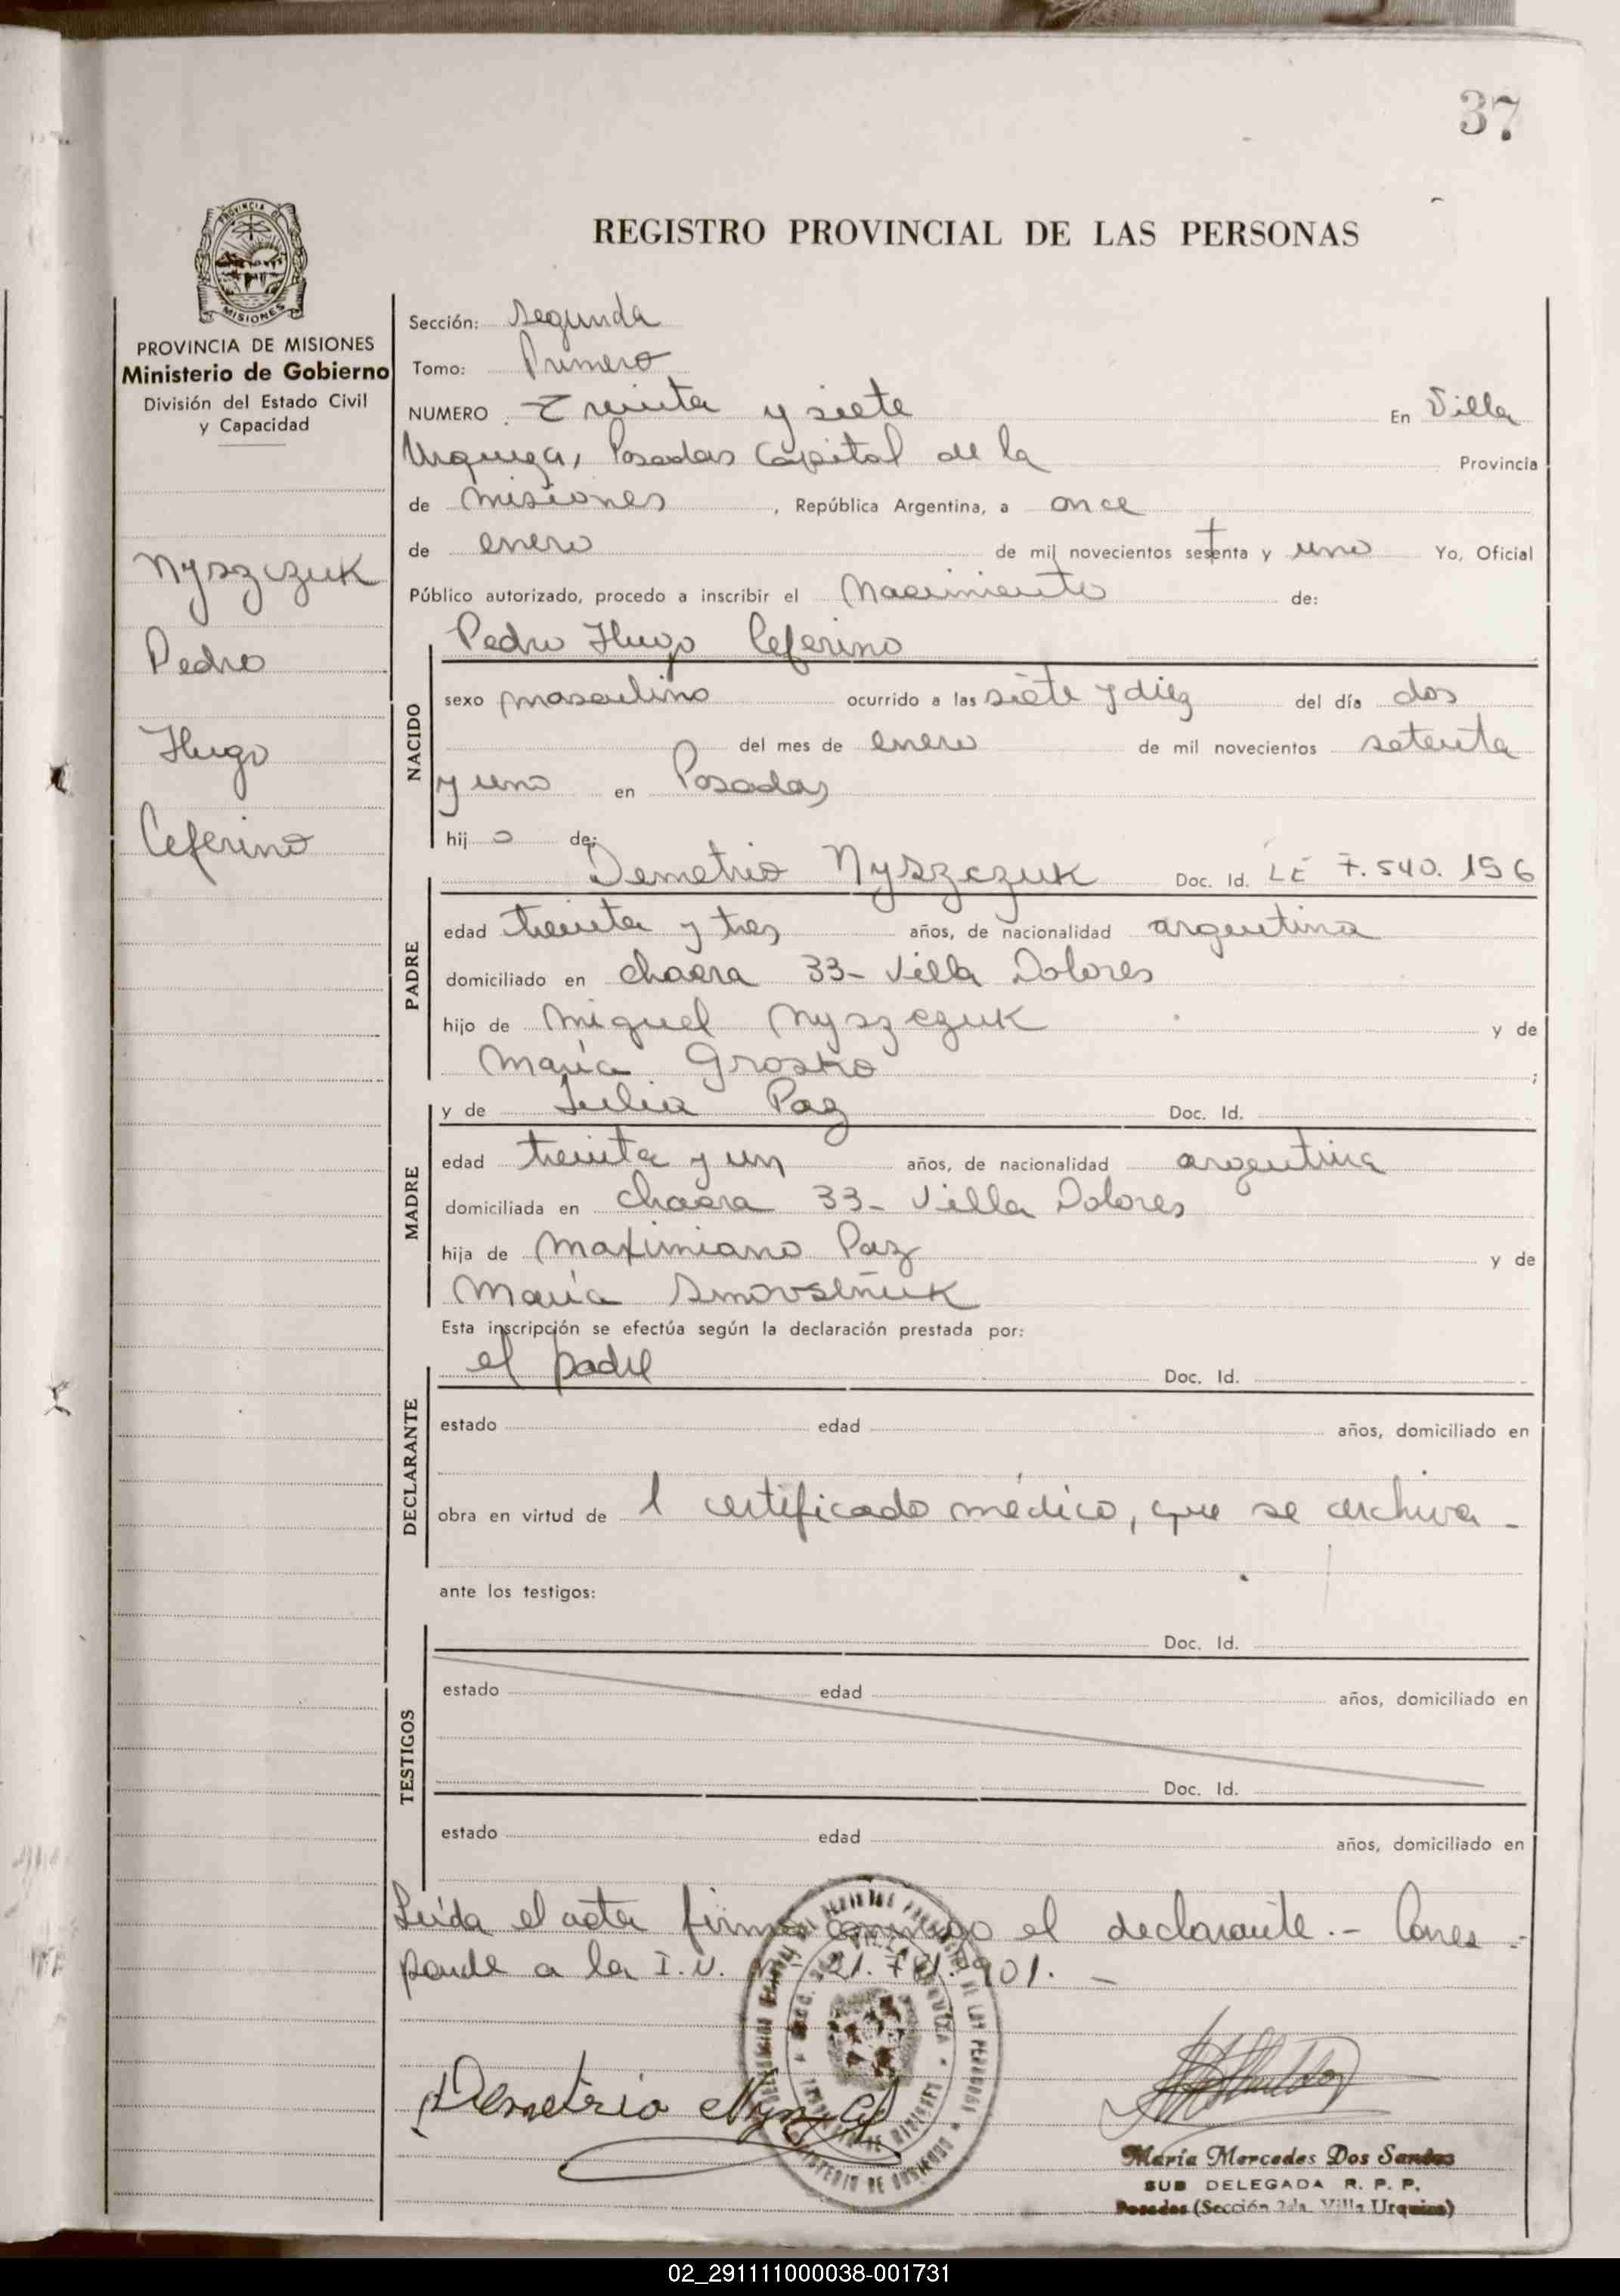 37
PROVINCIA DE
MISIONES
REGISTRO PROVINCIAL DE LAS PERSONAS
PROVINCIA DE MISIONES
Ministerio de Gobierno
División del Estado Civil
y Capacidad
Nyszczuk
Pedro
Hugo
Ceferino
Sección: Segunda
Tomo: Primero
NUMERO Treinta y siete En Villa
Urquiza, Posadas Capital de la Provincia
de Misiones, República Argentina, a once
de enero de mil novecientos sesenta y uno Yo, Oficial
Público autorizado, procedo a inscribir el Nacimiento de:
NACIDO
Pedro Hugo Ceferino
sexo masculino ocurrido a las siete y diez del día dos
del mes de enero de mil novecientos setenta
y uno en Posadas
hijo de:
PADRE
Demetrio Nyszczuk Doc. Id. LE 7.540.156
edad treinta y tres años, de nacionalidad argentina
domiciliado en chacra 33- Villa Dolores
hijo de Miguel Nyszczuk y de
María Grosko ;
MADRE
y de Julia Paz Doc. Id.
edad treinta y un años, de nacionalidad argentina
domiciliada en chacra 33- Villa Dolores
hija de Maximiano Paz y de
María
Esta inscripción se efectúa según la declaración prestada por:
DECLARANTE
el padre Doc. Id.
estado edad años, domiciliado en
obra en virtud de 1 certificado médico, que se archiva-
ante los testigos:
TESTIGOS
Doc. Id.
estado edad años, domiciliado en
Doc. Id.
estado edad años, domiciliado en
Leída el acta firma conmigo el declarante.- Corres-
ponde a la I.U. 21.7 901.-
Demetrio
María Mercedes Dos Santos
SUB DELEGADA R. P. P.
Posadas (Sección 2da. Villa Urquiza)
02_291111000038-001731